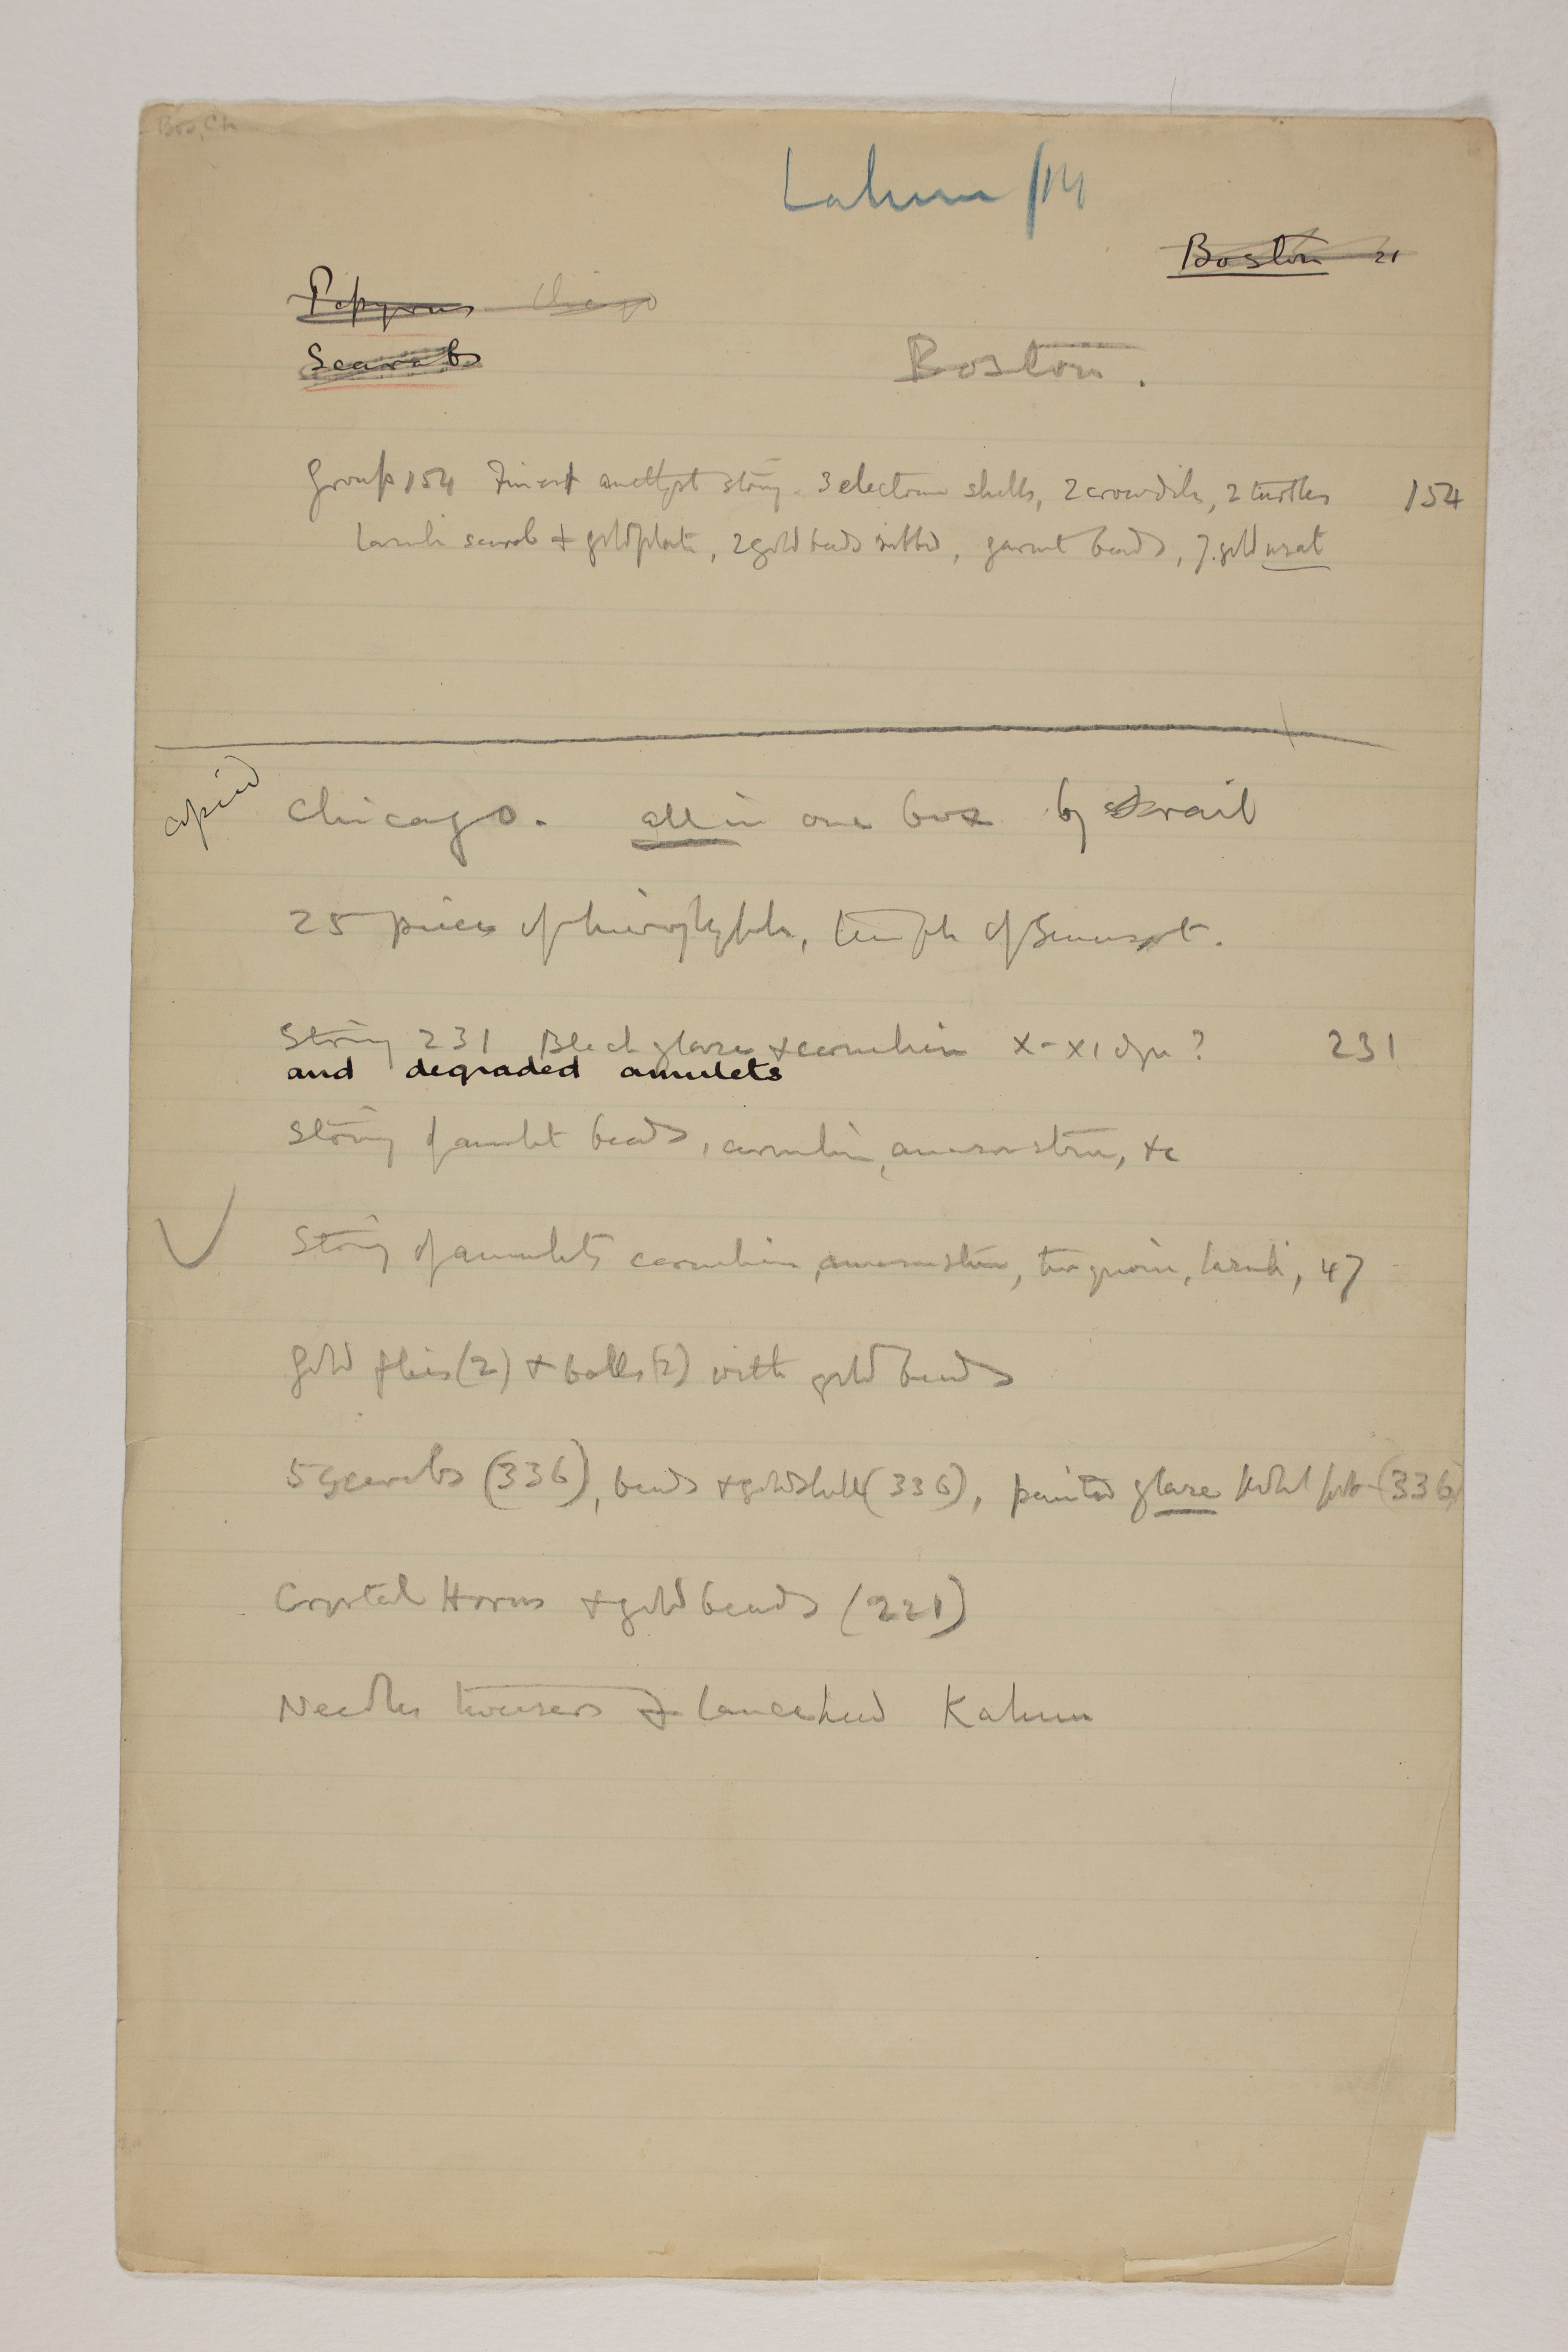 Bos, Ch
Lahun /14
Boston 21
Papyrus Chicago
Scarabs
Boston.
Group 154 Finest amethyst string. 3 electrum shells, 2 crocodils, 2 turtles 154
Lazuli scarab + gold plate, 2 gold beads ribbed, garnet beads, 7 gold uzat
copied
Chicago. all in one box by rail
25 pieces of hieroglyphs, temple of Senusert.
String 231 Black glaze + carnelian X-XI dyn? 231
and degraded amulets
String of amulet beads, carnelian, amazonstone, &c
String of amulets carnelian, amazonstone, turquoise, lazuli, 47
Gold flies (2) + balls (2) with gold beads
5 scarabs (336), beads + gold shell (336), painted glaze kohl pot (336)
Crystal Horus + gold beads (221)
Needles tweezers & lancehead Kahun